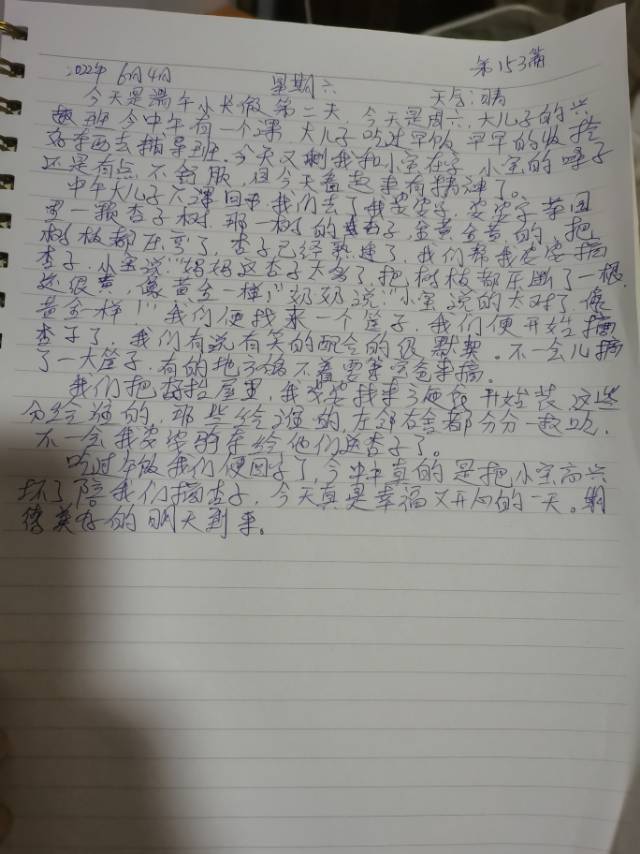 第153篇
2022年6月4日 星期六 天气:晴
今天是端午小长假第二天,今天是周六,大儿子的兴
趣班今中午有一个课,大儿子吃过早饭早早的收拾
好东西去辅导班,今天又剩我和小宝在家,小宝的嗓子
还是有点不舒服,但今天看起来有精神了。
中午大儿子下课回来,我们去了我婆婆家,婆婆家菜园
有一颗杏子树,那一树的杏子,金黄金黄的,把
树枝都压弯了,杏子已经熟透了,我们帮我婆婆摘
杏子,小宝说"妈妈这杏子太多了,把树枝都压断了一根,
像黄金一样!"奶奶说"小宝说的太对了,像
黄金一样!"我们便找来一个筐子,我们便开始摘
杏子了,我们有说有笑的配合的很默契。不一会儿摘
了一大筐子,有的地方够不着要等宝爸来摘。
我们把杏抬屋里,我婆婆找来方便袋开始装,这些
分给谁的,那些给谁的,左邻右舍都分分一起吃,
不一会我婆婆骑车给他们送杏子了。
吃过午饭我们便回家了,今中午真的是把小宝高兴
坏了陪我们摘杏子,今天真是幸福又开心的一天。期
待美好的明天到来。